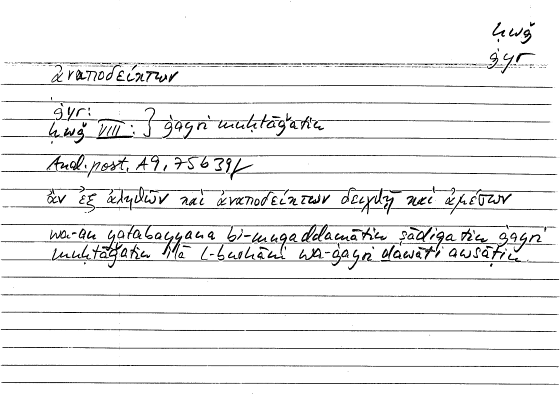 ḥwǧ
ġyr
ἀναποδείκτων
ġyr:
ḥwǧ VIII: } ġayri muḥtāǧatin
Anal. post. A9, 75b39f
ἂν ἐξ ἀληθῶν καὶ ἀναποδείκτων δειχθῇ καὶ ἀμέσων
wa-an yatabayyana bi-muqaddamātin ṣādiqatin ġayri
muḥtāǧatin ilā l-burhāni wa-ġayri ḏawāti awsāṭin